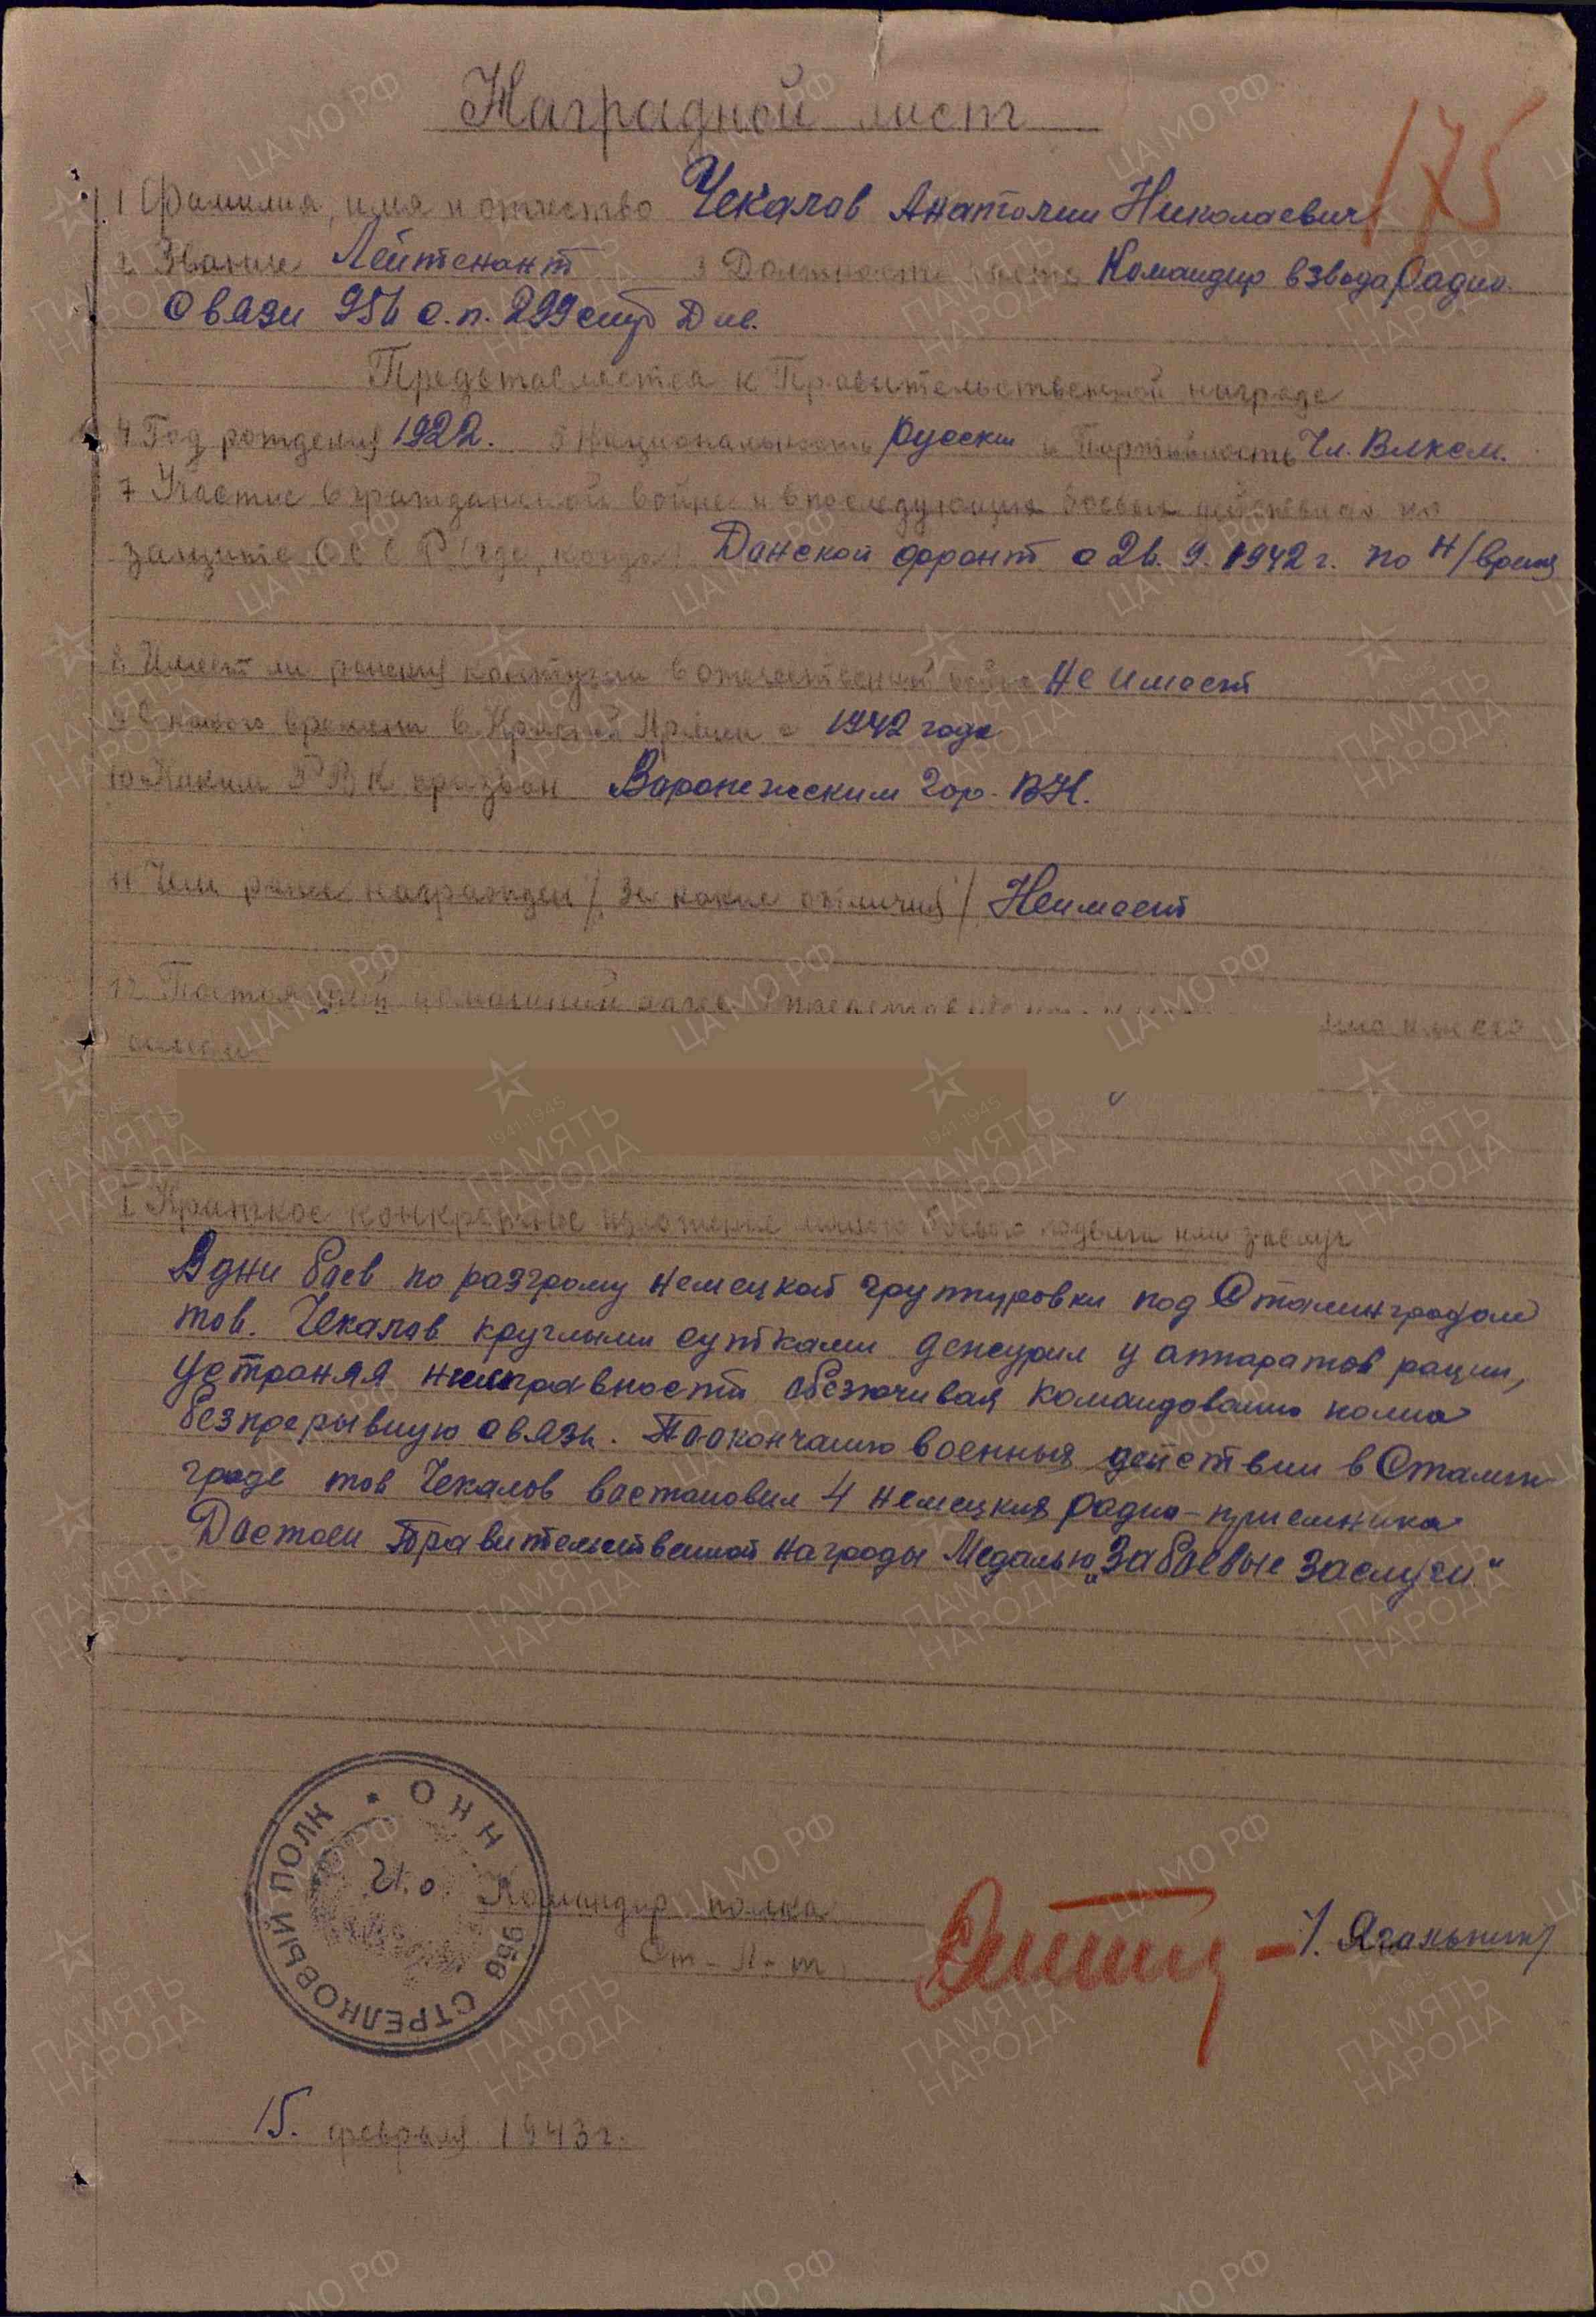 Наградной лист
175
1 Фамилия, имя и отчество Чекалов Анатолии Николаевич
2 Звание Лейтенант 3 Должность часть Командир взвода Радио.
Связи 956 с.п. 299 стр Див.
Представляется к Правительственной награде
4 Год рождения 1922. 5 Национальность Русски 6 Партийность Чл. Влксм.
7 Участие в гражданской войне и в последующих боевых действиях по
защите СССР (где, когда) Данской фронт с 26.9.1942 г. по н/время
8 Имеет ли ранения контузии в отечественной войне Не имеет
9 С какого времени в Красной Армии с 1942 года
10 Каким РВК призван Варонежским Гор. ВК.
11 Чем ранее награжден /за какие отличия/ Неимеет
12 Постоянный домашний адрес
семьи
I Краткое конкретное изложение личного боевого подвига или заслуг
В дни боев по разгрому немецкой группировки под Сталинградом
тов. Чекалов круглыми сутками дежурил у аппаратов рации,
устраняя неисправности обезпечивая командованию полка
безпрерывную связь. По окончанию военных действии в Сталин
граде тов Чекалов востановил 4 немецких радио-приемника
Достоен Правительственной награды Медалью „За боевые заслуги"
ОНН
956 СТРЕЛКОВЫЙ ПОЛК
Командир полка
Ст-Л-т
15. февраля 1943 г.
ЦА МО РФ
ПАМЯТЬ НАРОДА
1941-1945